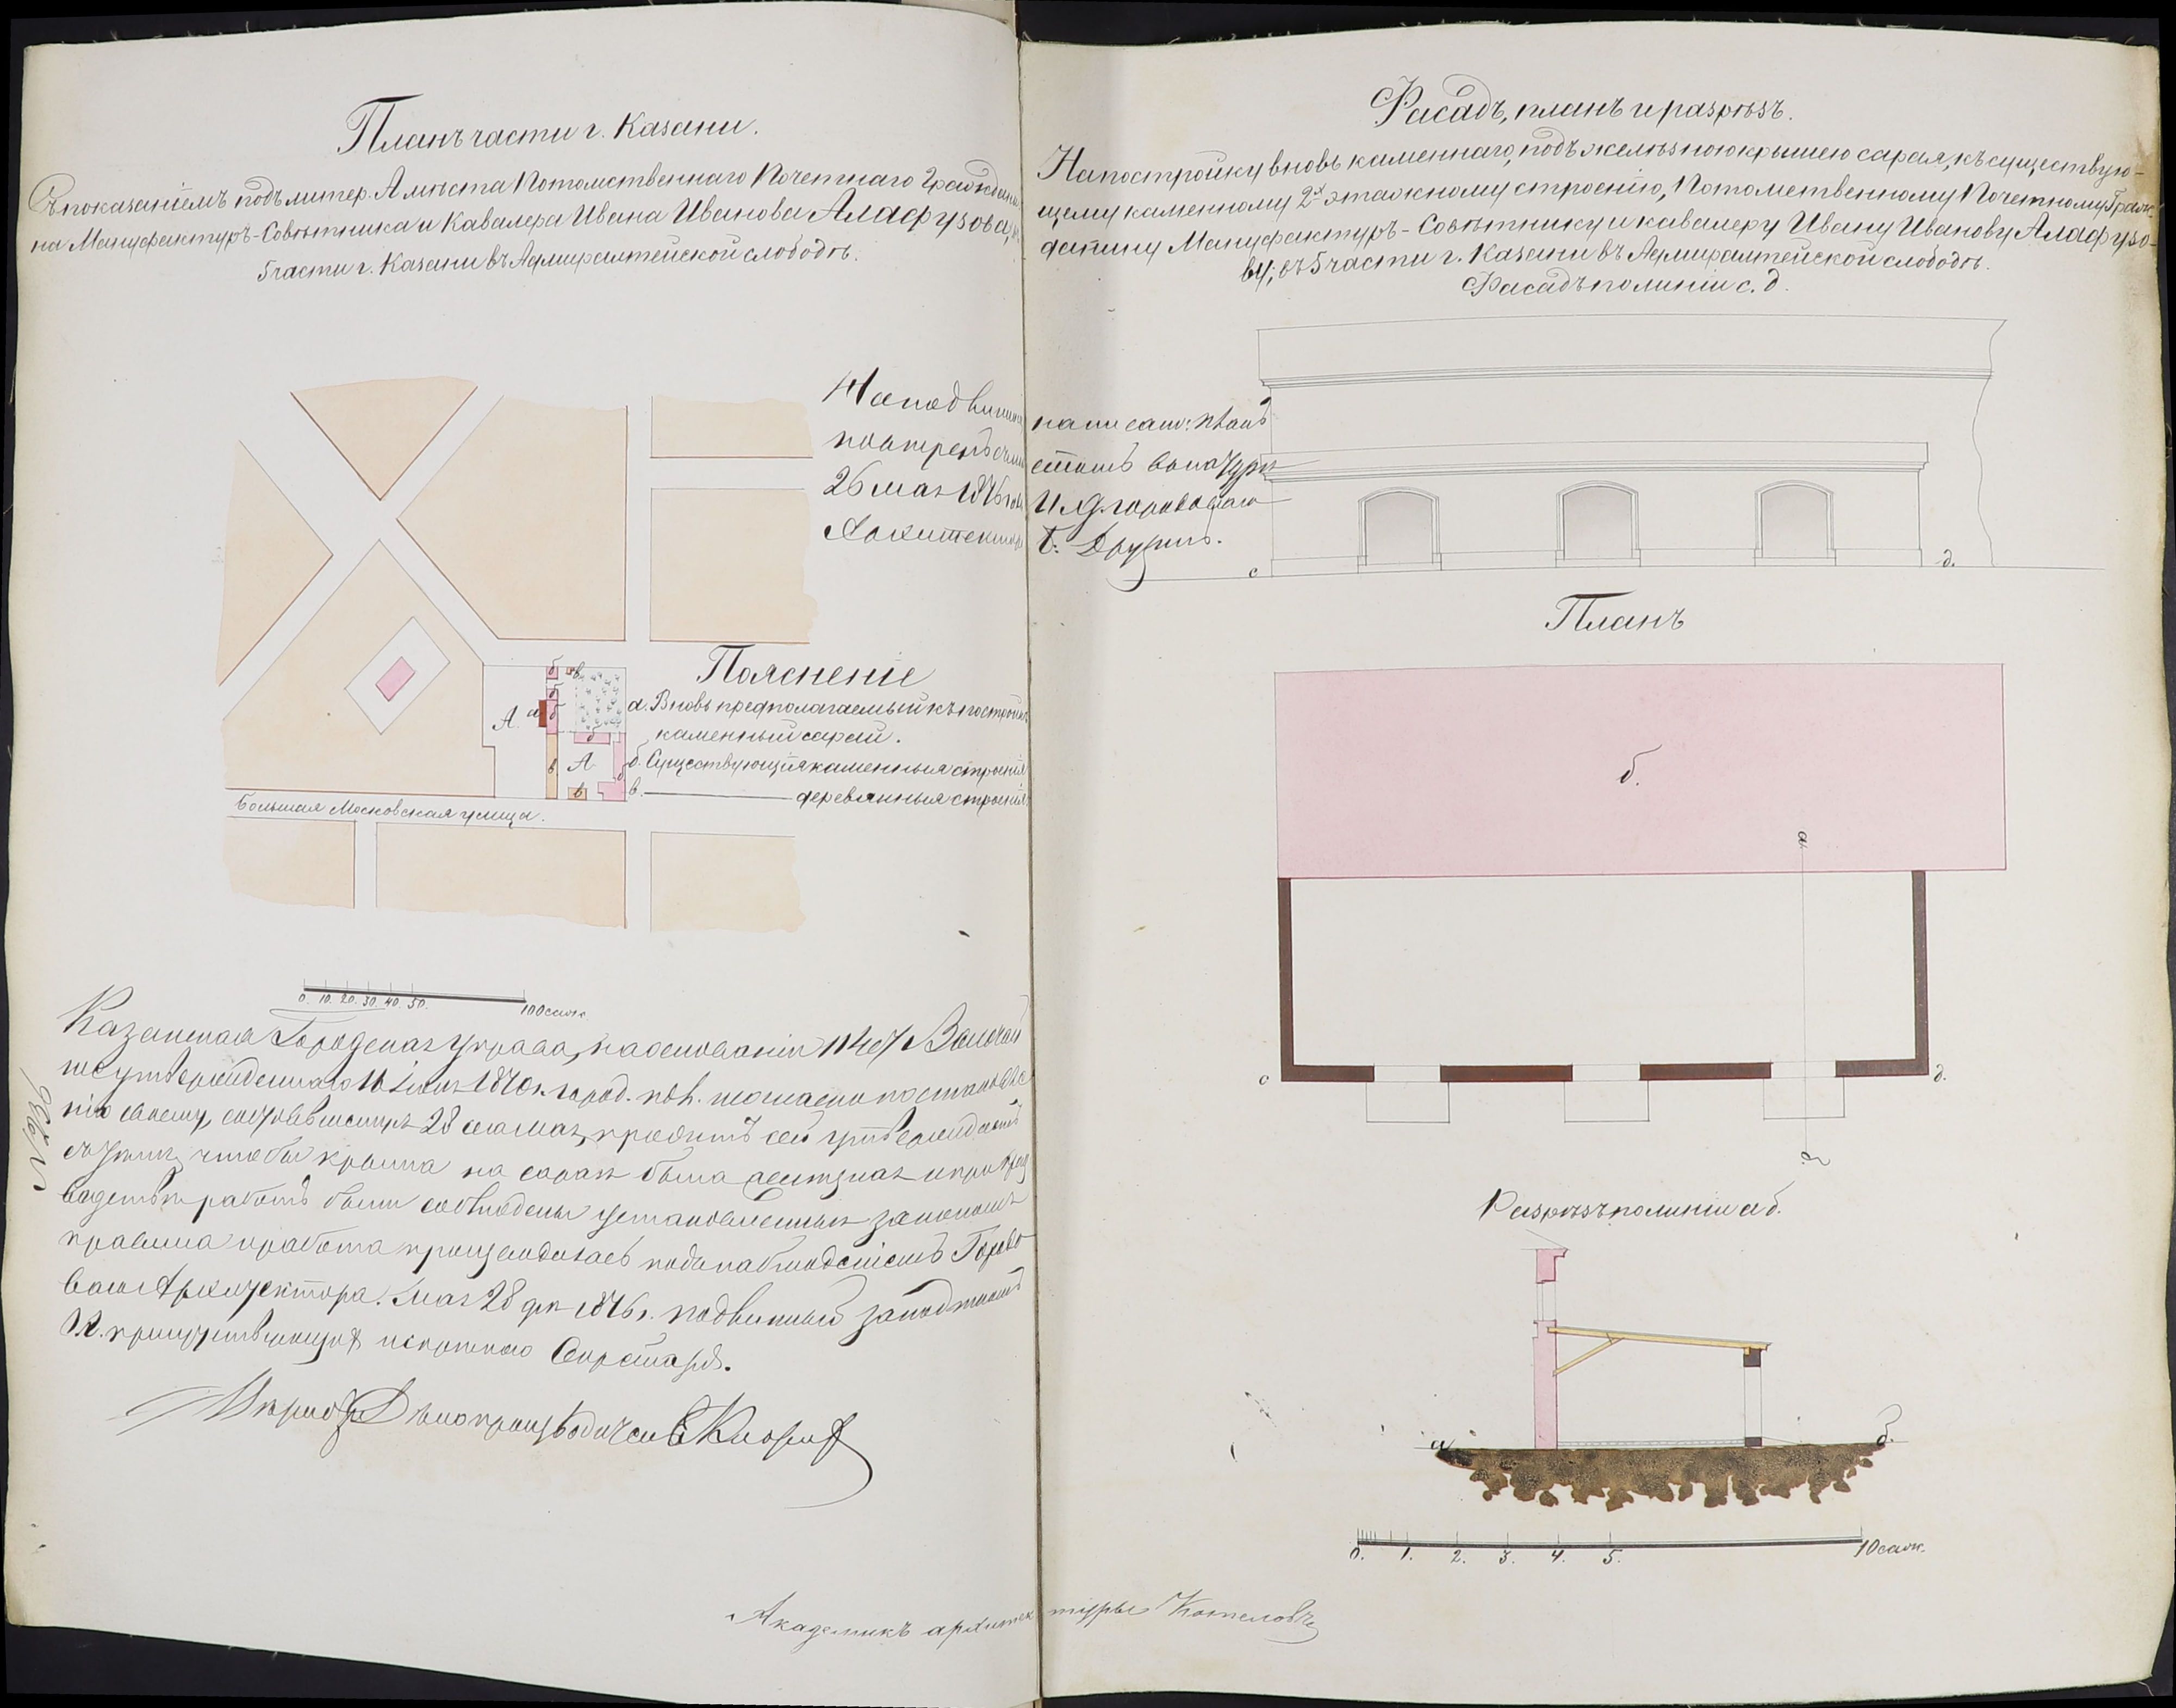 Планъ части г. Казани.
Съ показаніемъ подъ литер. А мѣста Потомственнаго Почетнаго Гражда-
на Мануфактуръ-Совѣтника и Кавалера Ивана Иванова Алафузова,
5 части г. Казани въ Адмиралтейской слободѣ.
На подлинномъ написано: планъ
повѣренъ съ мѣстомъ въ натурѣ
26 мая 1876 года И. Д. городоваго
Архитектора
б
в
б
А. а б
б
в А б
в
Большая Московская улица.
Поясненіе
а. Вновь предполагаемый къ постройкѣ
каменный сарай.
б. Существующія каменныя строенія
в. ——— деревянныя строенія
0. 10. 20. 30. 40. 50. 100 саж.
Казанская Городская управа, на основаніи 114 ст. Высочай
ше утвержденнаго 16 Іюня 1870 г. город. пол. и согласно постановле
нію своему, состоявшемуся 28 сего мая, проектъ сей утверждаетъ
съ тѣмъ, чтобы крыша на сараѣ была и при произ
водствѣ работъ были соблюдены установленныя закономъ
правила и работа производилась подъ наблюденіемъ Городо
ваго Архитектора. Мая 28 дня 1876 г. подлинный за подписью
г. присутствующихъ и скрѣпою Секретаря.
Вѣрно: Дѣлопроизводитель
Академикъ архитектуры
Фасадъ, планъ и разрѣзъ.
На постройку вновь каменнаго, подъ желѣзною крышею сарая, къ существую-
щему каменному 2х этажному строенію, Потомственному Почетному Граж-
данину Мануфактуръ-Совѣтнику и кавалеру Ивану Иванову Алафузо-
ву; въ 5 части г. Казани въ Адмиралтейской слободѣ.
Фасадъ по линіи с. д.
с д.
Планъ
б.
а
с д.
б
Разрѣзъ по линіи а б.
а б.
0. 1. 2. 3. 4. 5. 10 саж.